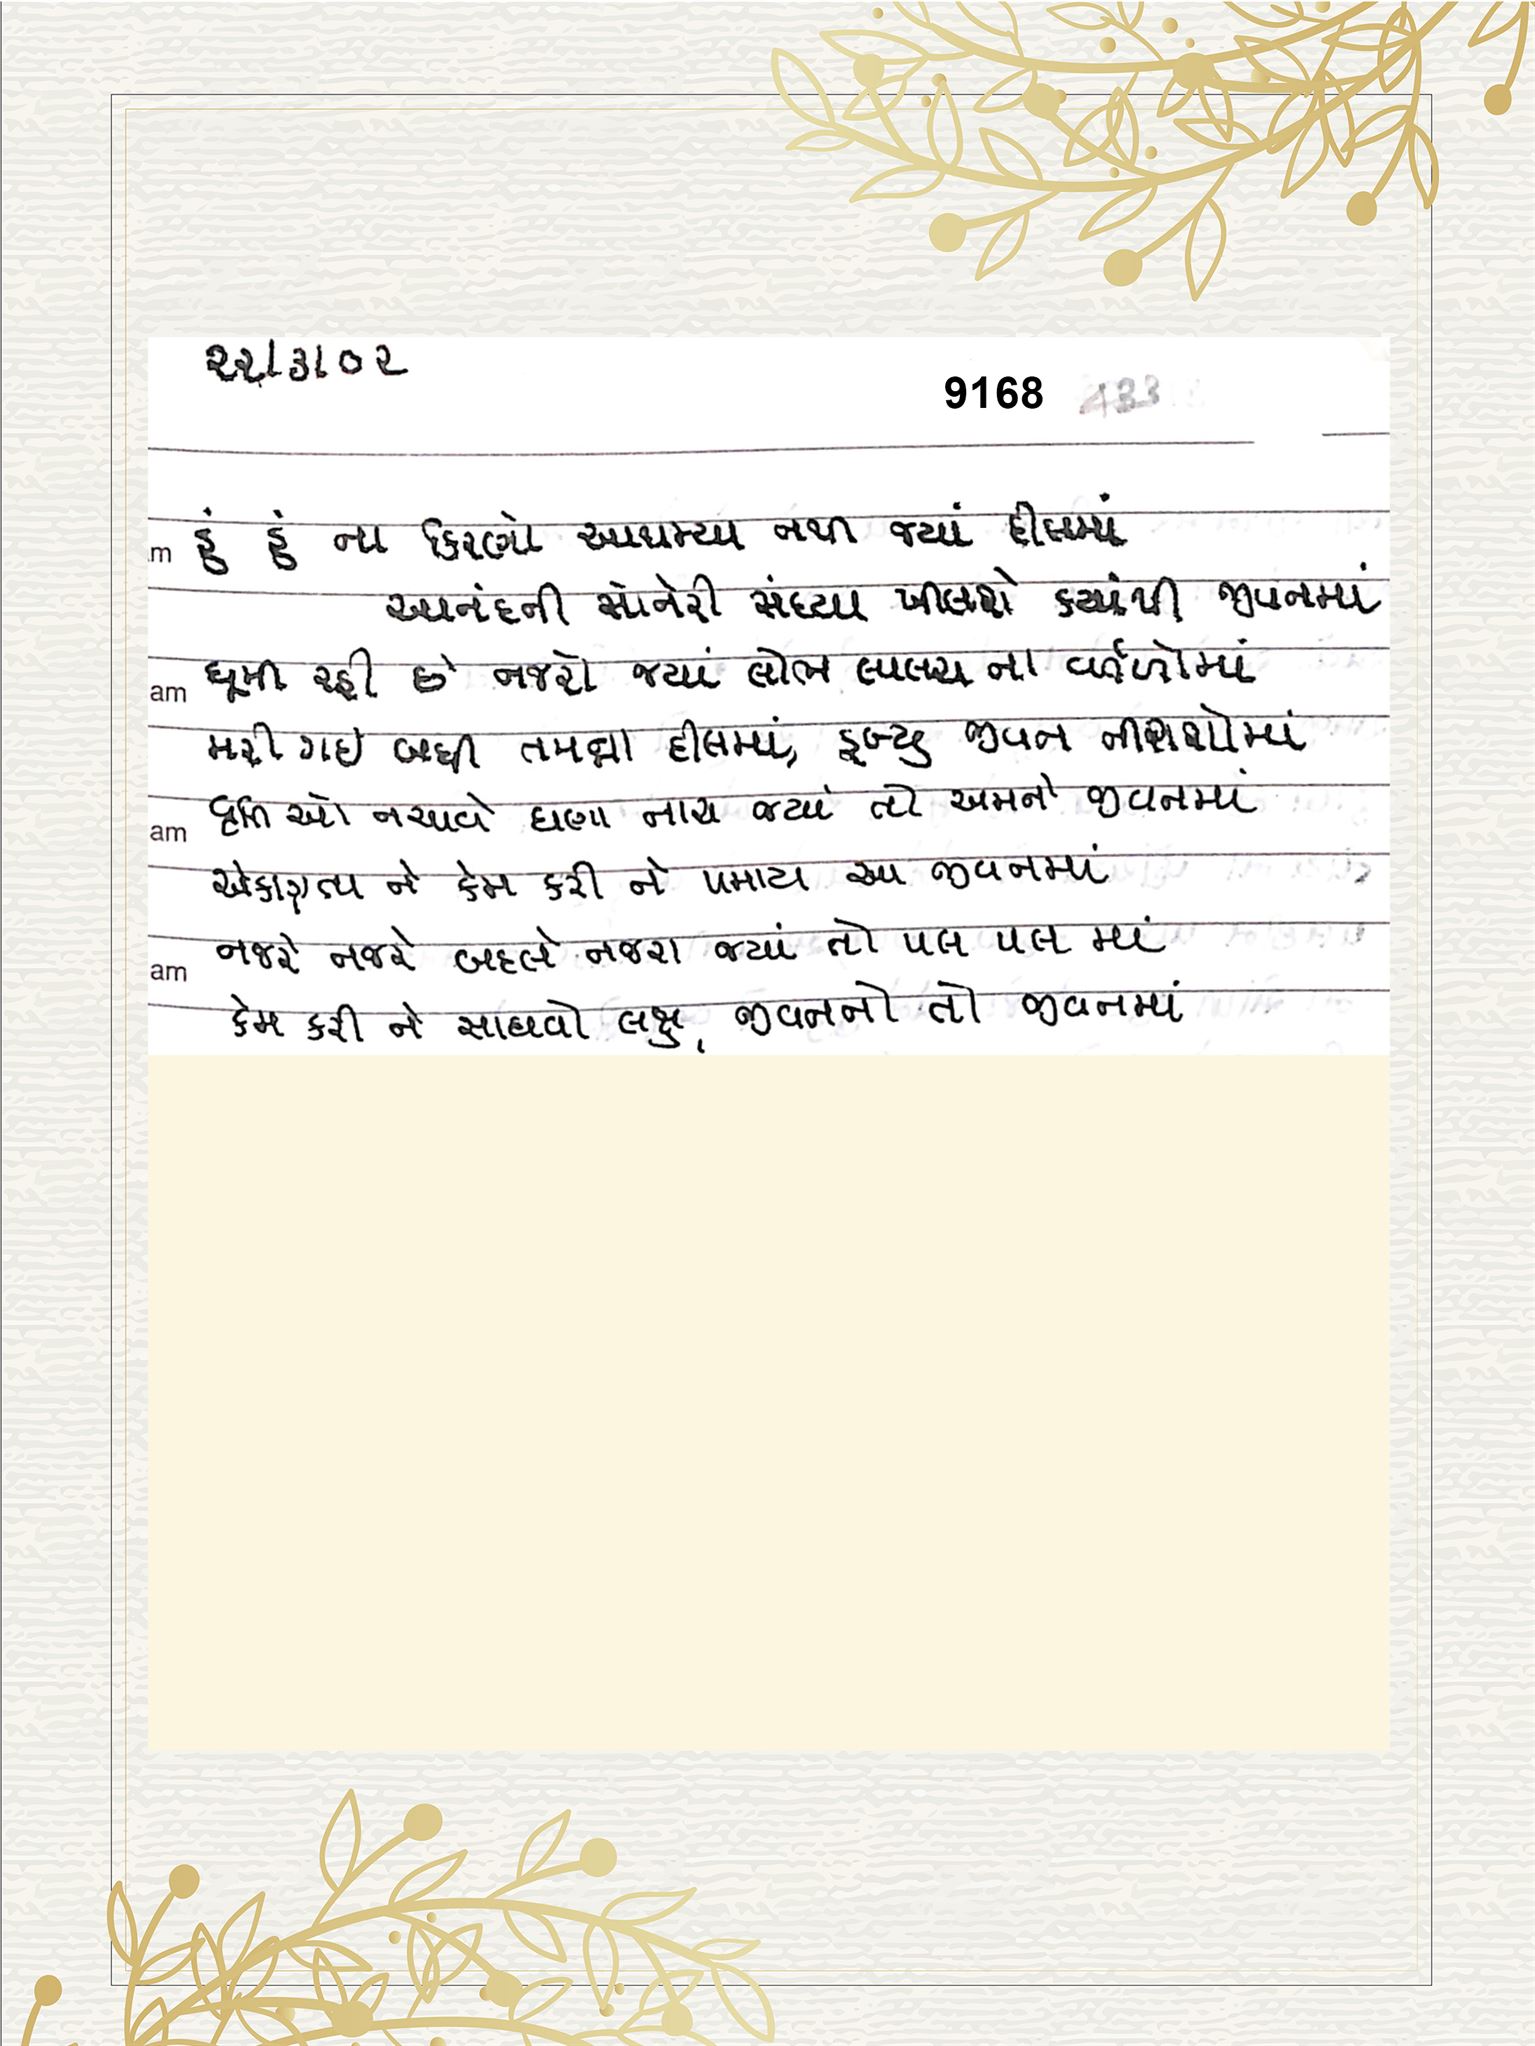 ૨૨/૩/૦૨
9168
હું હું ના કિરણો આથમ્યા નથી જ્યાં દીલમાં
આનંદની સોનેરી સંધ્યા ખીલશે ક્યાંથી જીવનમાં
ઘૂમી રહી છે નજરો જ્યાં લોભ લાલચ ના વર્તુળોમાં
મરી ગઇ બધી તમન્ના દીલમાં, ડૂબ્યુ જીવન નીરાશોમાં
વૃત્તિ ઓ નચાવે ઘણા નાચ જ્યાં તો અમને જીવનમાં
એકાગ્રતા ને કેમ કરી ને પમાય આ જીવનમાં
નજરે નજરે બદલે નજરા જ્યાં તો પલ પલ માં
કેમ કરી ને સાધવો લક્ષ, જીવનનો તો જીવનમાં
am
am
am